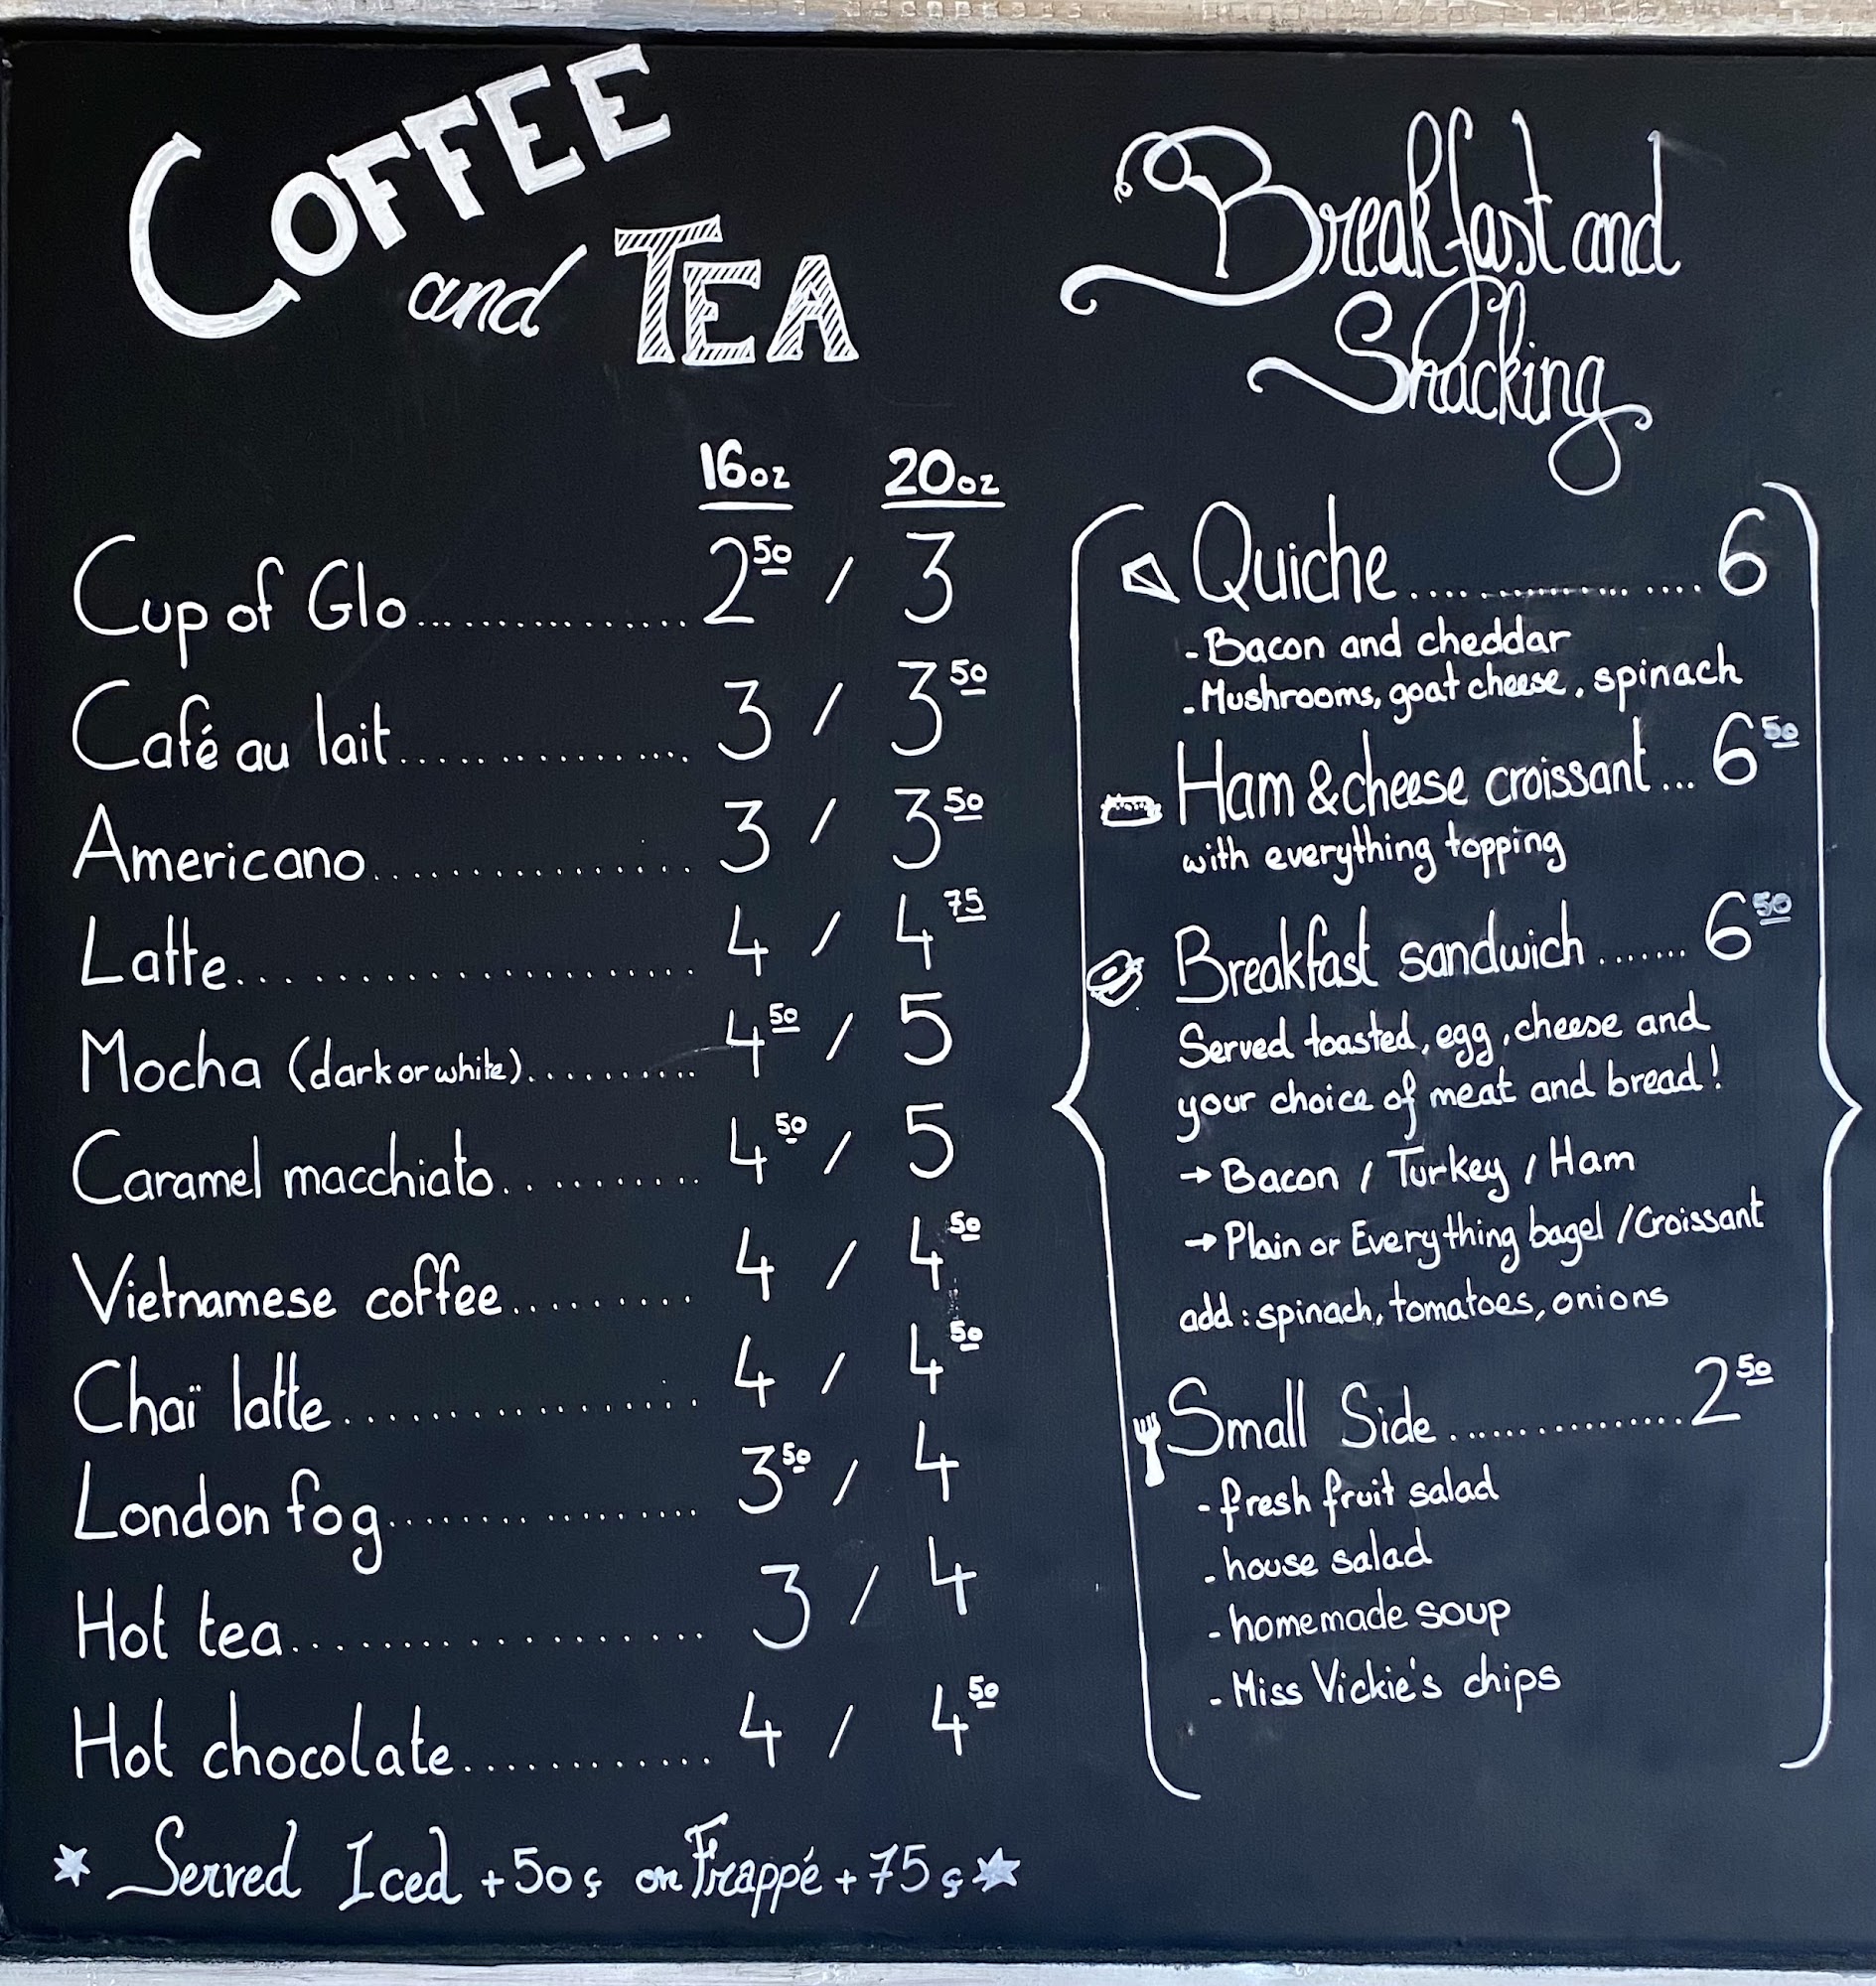 COFFEE
and TEA
16oz 20oz
Cup of Glo............... 2 50 / 3
Café au lait............... 3 / 3 50
Americano................ 3 / 3 50
Latte..................... 4 / 4 75
Mocha (dark or white).......... 4 50 / 5
Caramel macchiato.......... 4 50 / 5
Vietnamese coffee......... 4 / 4 50
Chaï latte................. 4 / 4 50
London fog................ 3 50 / 4
Hot tea................... 3 / 4
Hot chocolate............ 4 / 4 50
Served Iced +50 ç or Frappé +75 ç
Breakfast and
Snacking
Quiche.................. 6
- Bacon and cheddar
- Mushrooms, goat cheese, spinach
Ham & cheese croissant... 6 50
with everything topping
Breakfast sandwich....... 6 50
Served toasted, egg, cheese and
your choice of meat and bread!
→ Bacon / Turkey / Ham
→ Plain or Everything bagel / Croissant
add: spinach, tomatoes, onions
Small Side................ 2 50
- fresh fruit salad
- house salad
- homemade soup
- Miss Vickie's chips